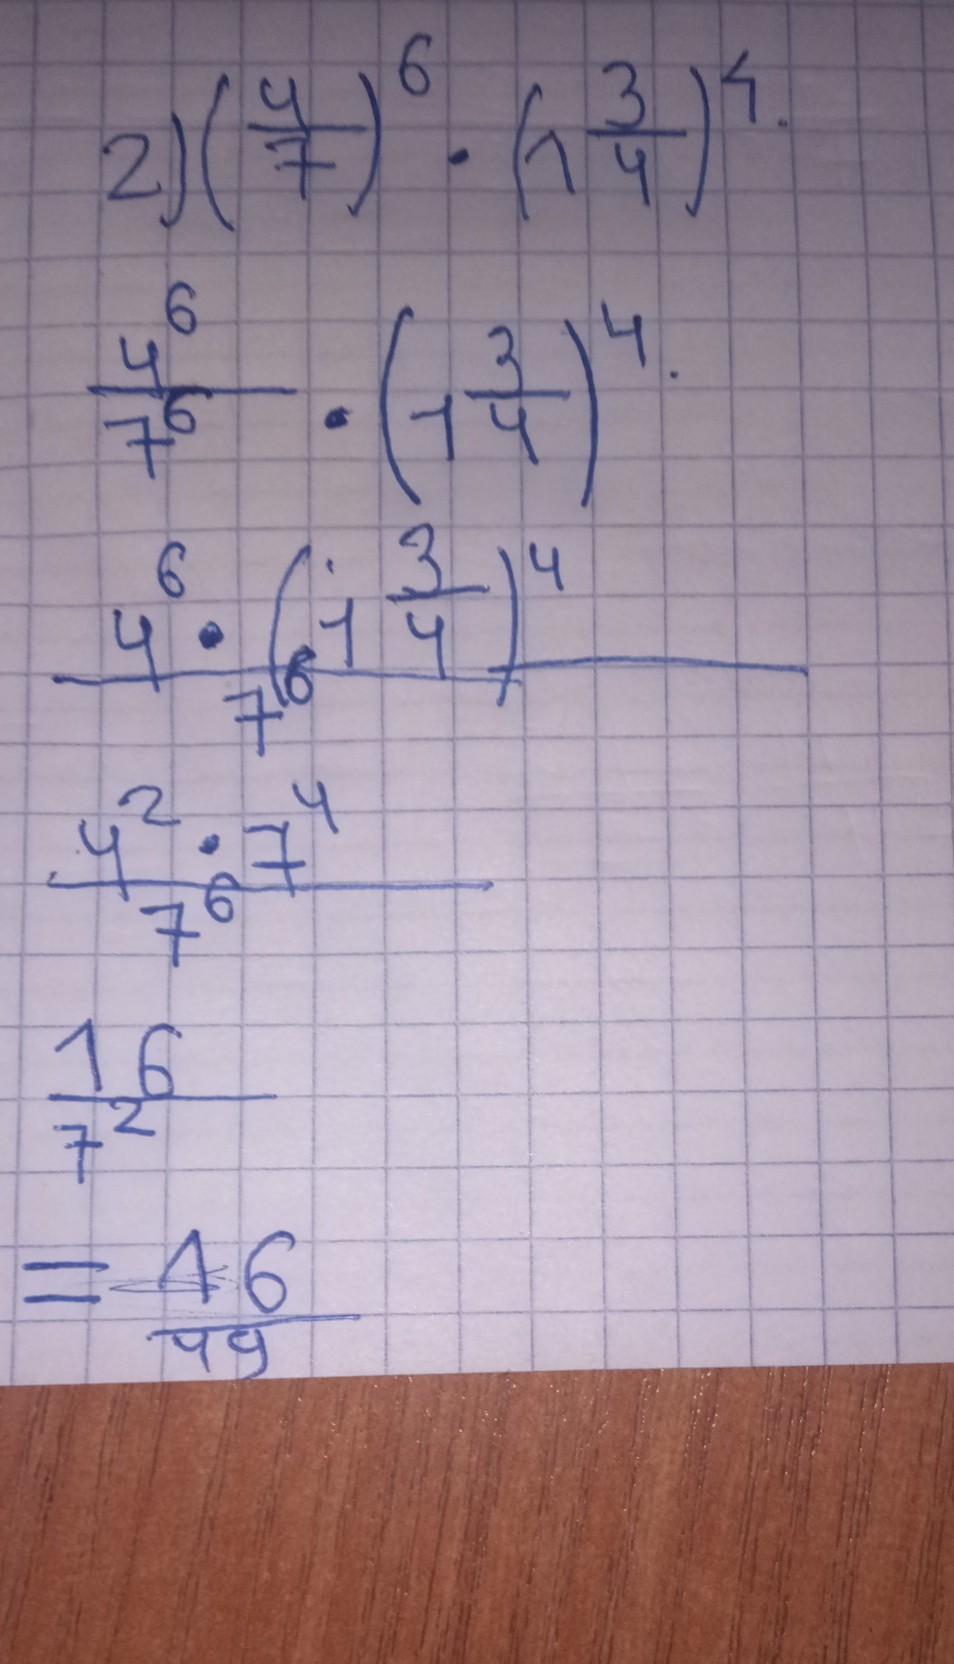 2) (4/7)^6 · (1 3/4)^4.
4^6/7^6 · (1 3/4)^4.
4^6 · (1 3/4)^4 / 7^6
4^2 · 7^4 / 7^6
16/7^2
= 16/49